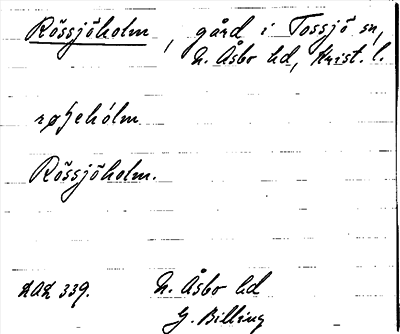 Rössjöholm, gård i Tossjö sn,
N. Åsbo hd, Krist. l.
Rössjöholm.
LAL 339. N. Åsbo hd
G. Billing